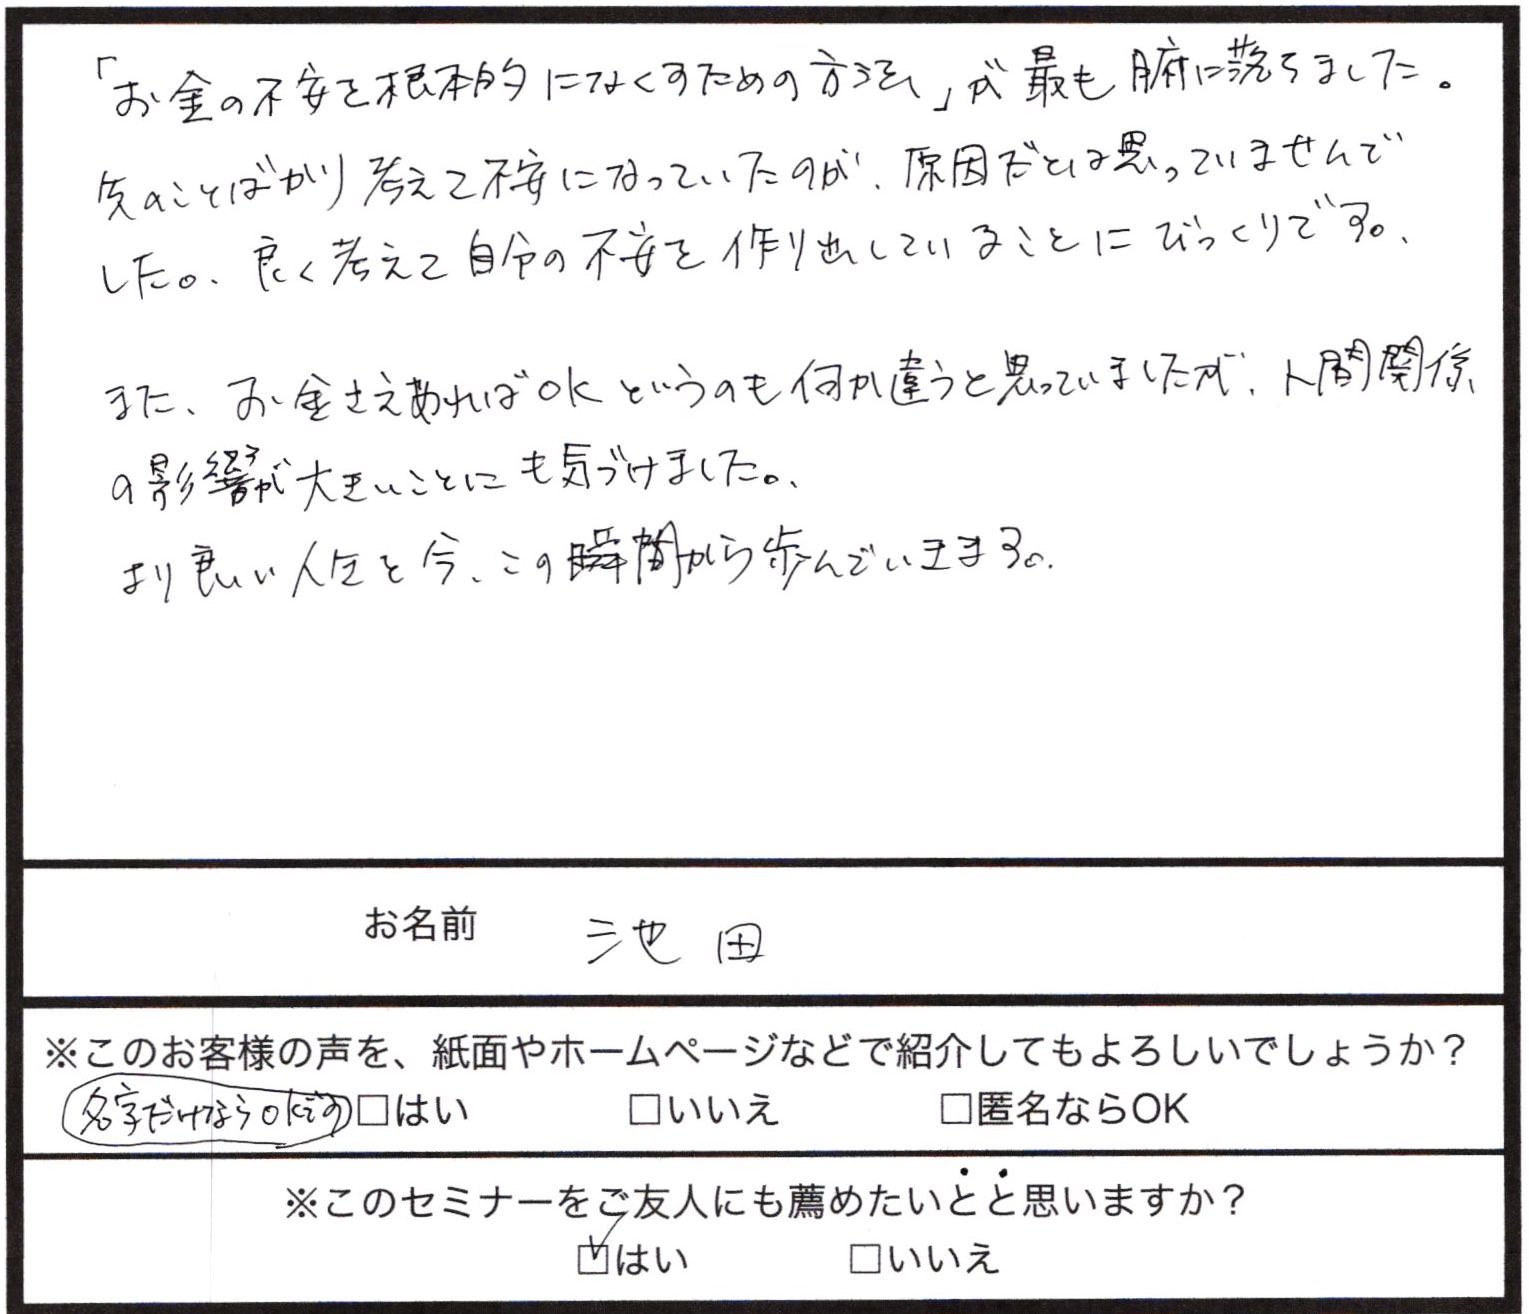 「お金の不安を根本的になくすための方法」が最も腑に落ちました。
先のことばかり考えて不安になっていたのが、原因だとは思っていませんで
した。良く考えて自分の不安を作り出していることにびっくりです。
また、お金さえあればOKというのも何か違うと思っていましたが、人間関係
の影響が大きいことにも気づけました。
より良い人生を今、この瞬間から歩んでいきます。
お名前 池田
※このお客様の声を、紙面やホームページなどで紹介してもよろしいでしょうか?
名字だけならOKです □はい □いいえ □匿名ならOK
※このセミナーをご友人にも薦めたいとと思いますか?
☑はい □いいえ